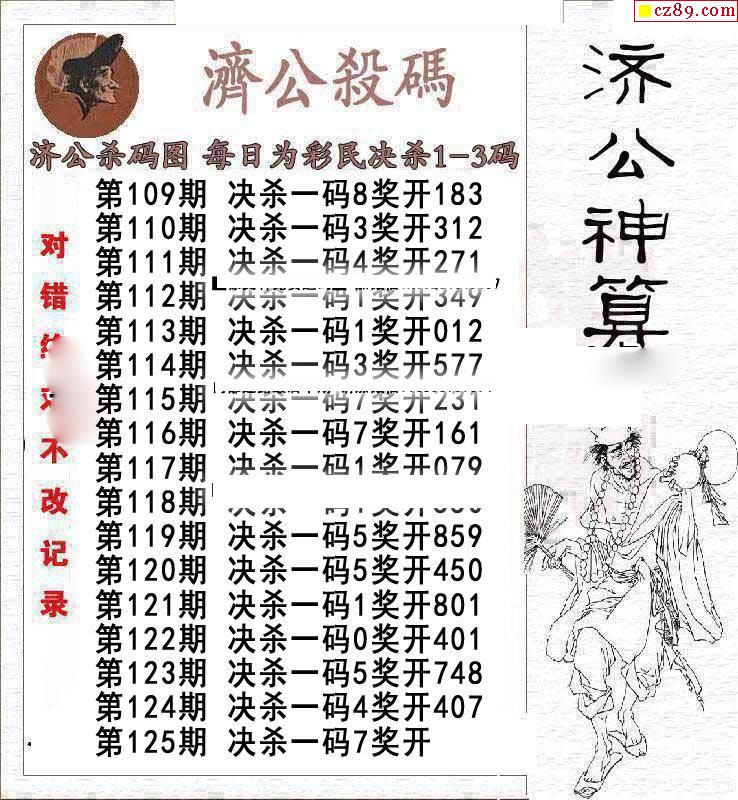 cz89.com
濟公殺碼
济公杀码图 每日为彩民决杀1-3码
第109期 决杀一码8奖开183
第110期 决杀一码3奖开312
第111期 决杀一码4奖开271
第112期 决杀一码1奖开349
第113期 决杀一码1奖开012
第114期 决杀一码3奖开577
第115期 决杀一码7奖开231
第116期 决杀一码7奖开161
第117期 决杀一码1奖开079
第118期
第119期 决杀一码5奖开859
第120期 决杀一码5奖开450
第121期 决杀一码1奖开801
第122期 决杀一码0奖开401
第123期 决杀一码5奖开748
第124期 决杀一码4奖开407
第125期 决杀一码7奖开
对错
不改记录
济公神算